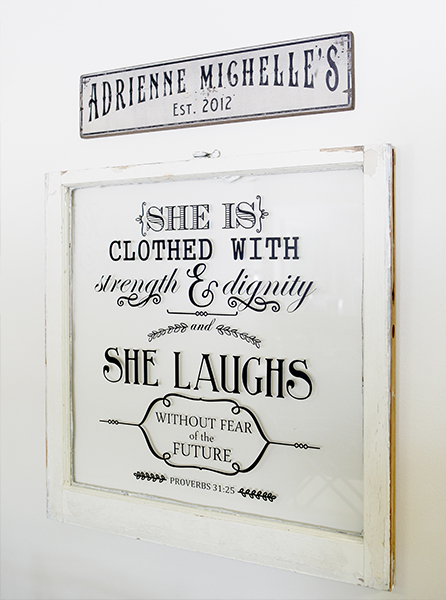 ADRIENNE MICHELLE'S
EST. 2012
{SHE IS}
CLOTHED WITH
strength & dignity
and
SHE LAUGHS
WITHOUT FEAR
of the
FUTURE
PROVERBS 31:25